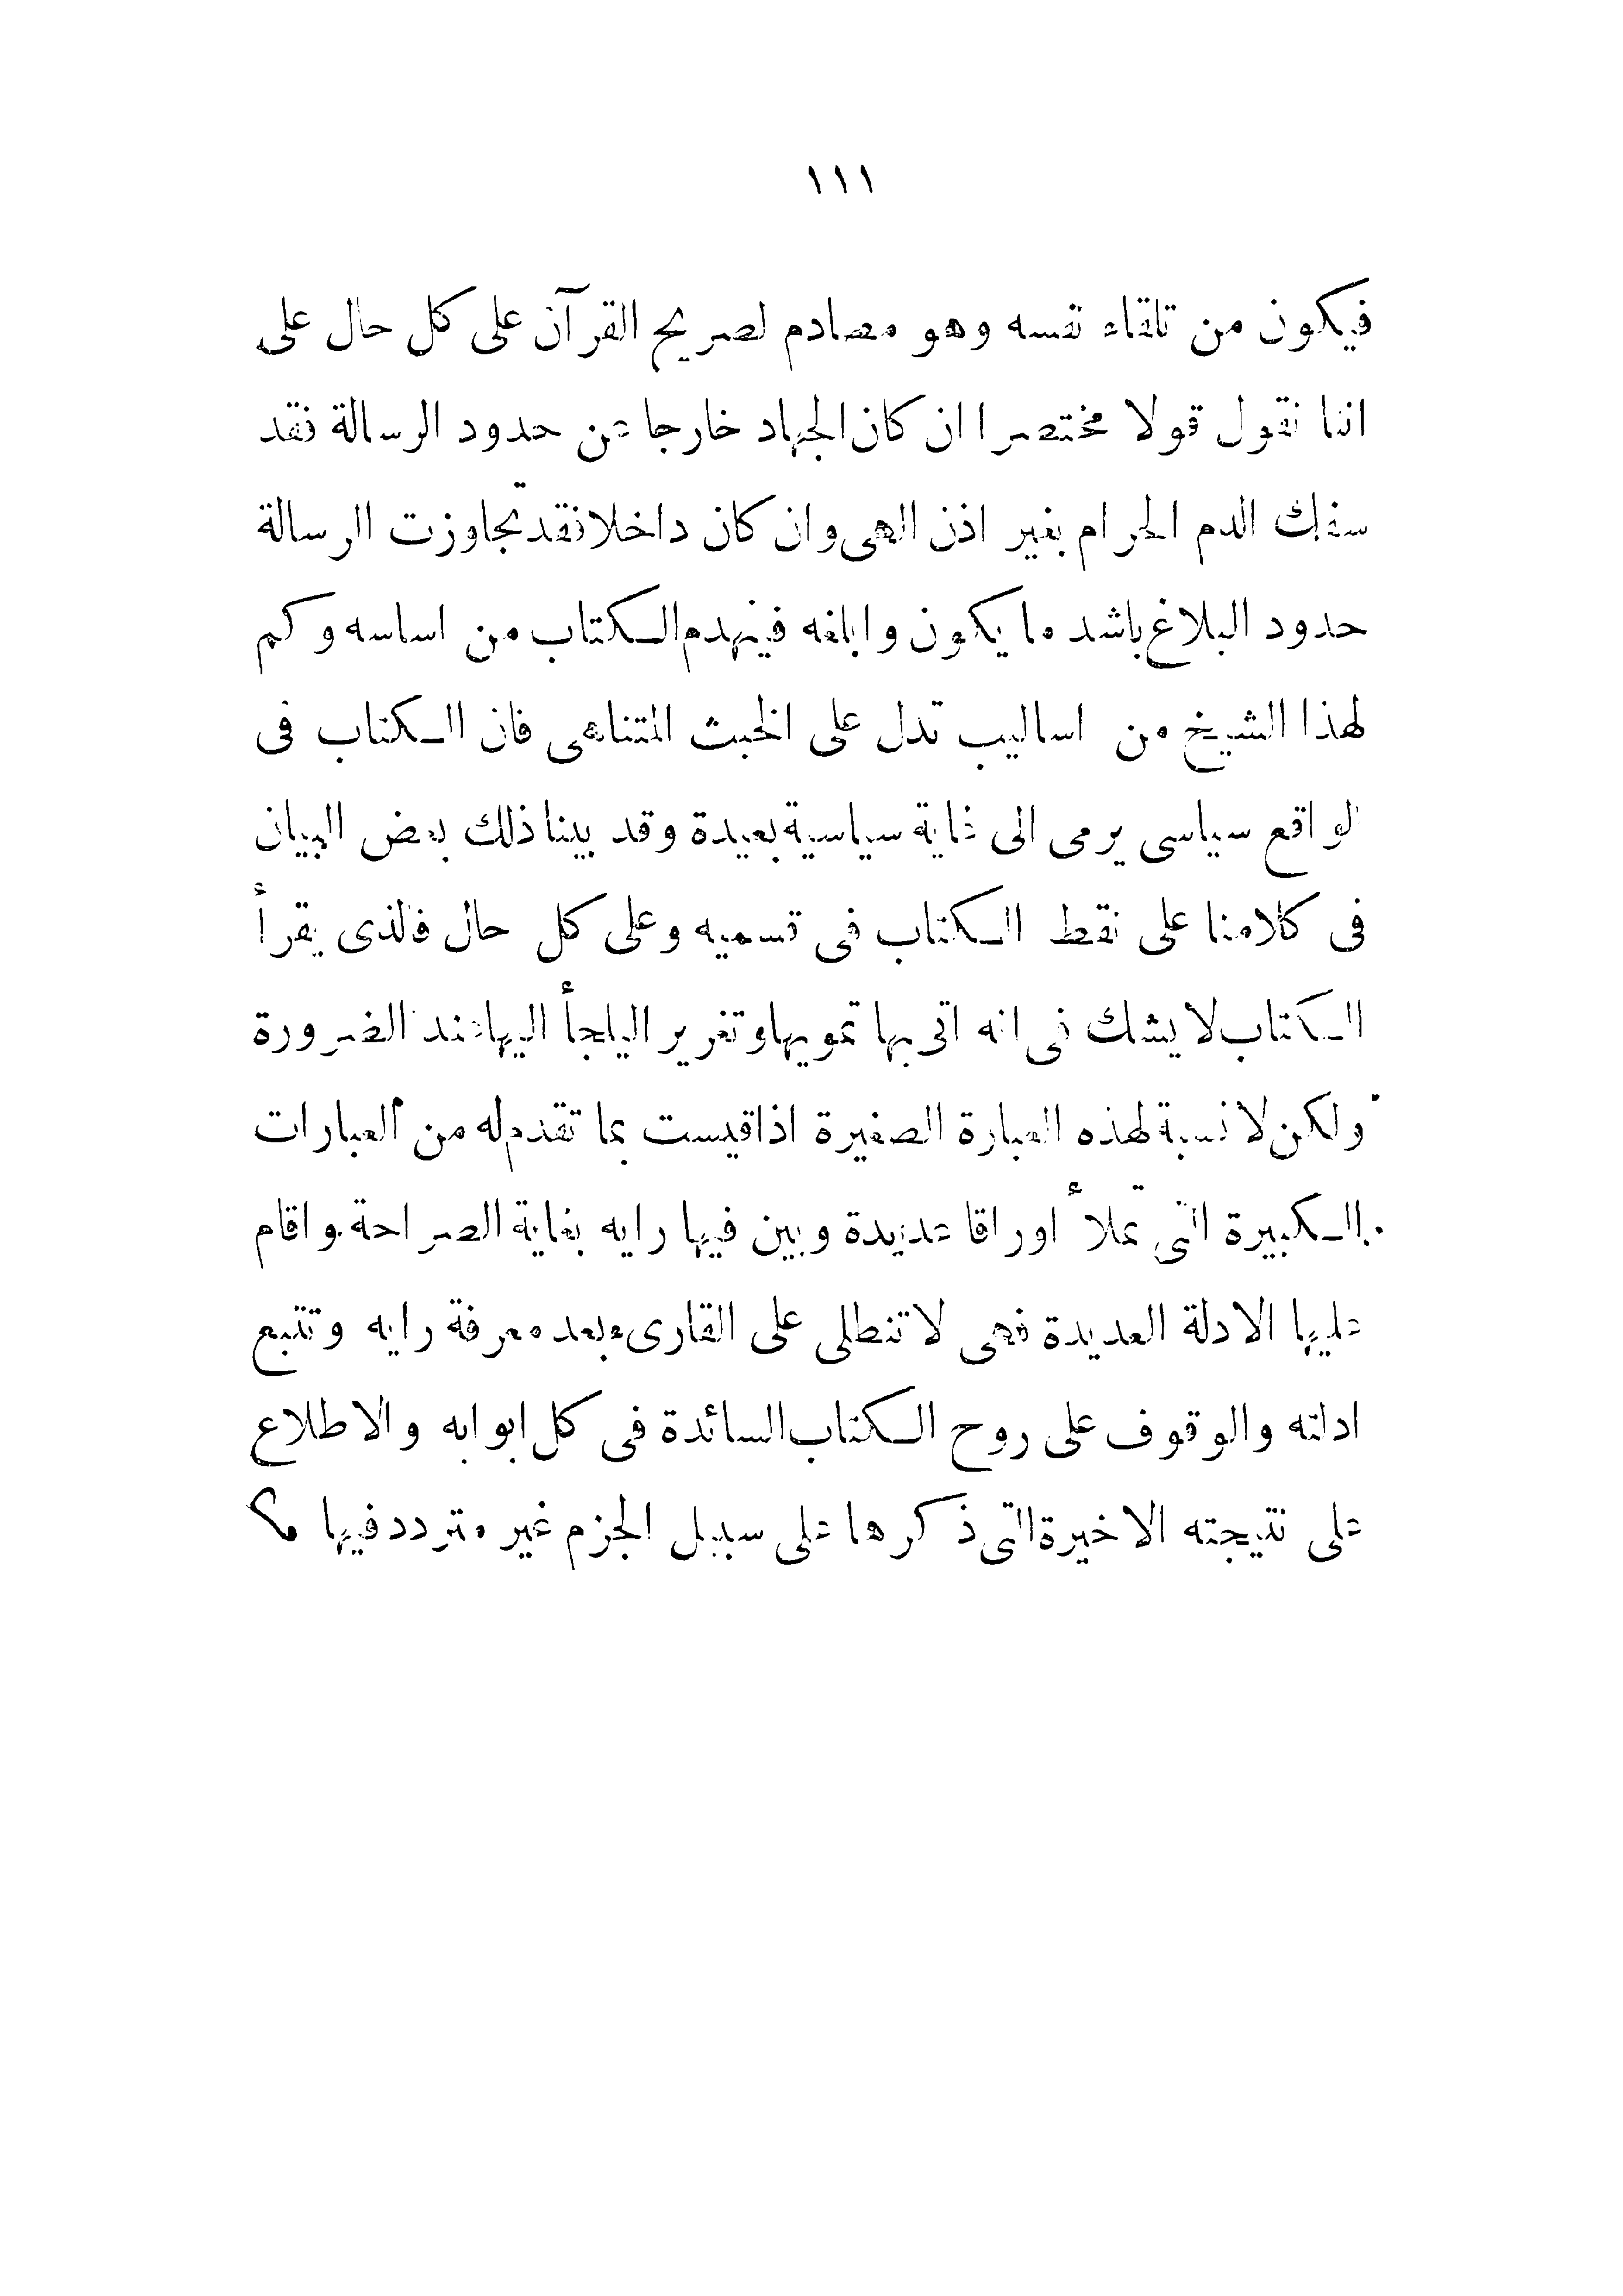 ١١١
فيكون من تلقاء نفسه وهو مصادم لصريح القرآن على كل حال على
اننا نقول قولا مختصرا ان كان الجهاد خارجا عن حدود الرسالة فقد
سفك الدم الحرام بغير اذن الهى وان كان داخلا فقد تجاوزت الرسالة
حدود البلاغ باشد ما يكون وابلغه فينهدم الكتاب من اساسه وكم
لهذا الشيخ من اساليب تدل على الخبث المتناهى فان الكتاب فى
الواقع سياسى يرمى الى غاية سياسية بعيدة وقد بينا ذلك بعض البيان
فى كلامنا على نقط الكتاب فى قسميه وعلى كل حال فالذى يقرأ
الكتاب لا يشك فى انه اتى بها تمويها وتغريرا ليلجأ اليها عند الضرورة
ولكن لا نسبة لهذه العبارة الصغيرة اذا قيست بما تقدم له من العبارات
الكبيرة التى تملأ اوراقا عديدة وبين فيها رايه بغاية الصراحة واقام
عليها الادلة العديدة فهى لا تنطلى على القارىء بعد معرفة رايه وتتبع
ادلته والوقوف على روح الكتاب السائدة فى كل ابوابه والاطلاع
على نتيجته الاخيرة التى ذكرها على سبيل الجزم غير متردد فيها